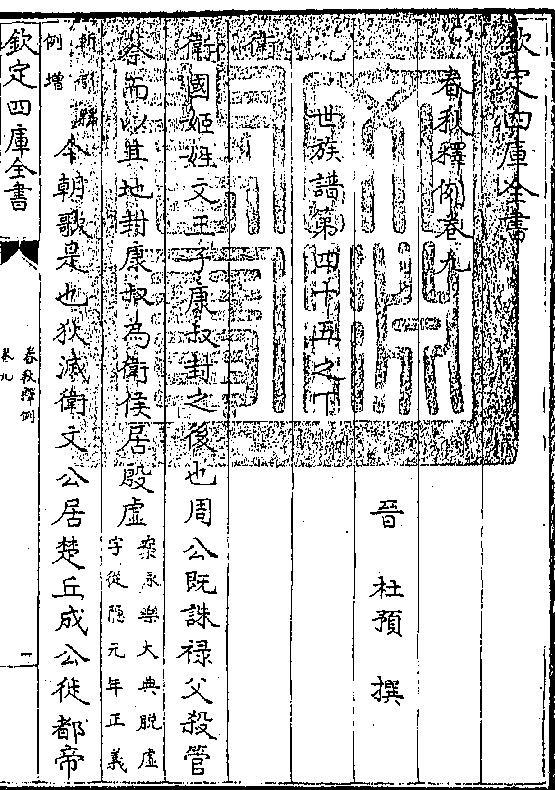 欽定四庫全書
春秋釋例卷九
晉 杜預 撰
世族譜第四十五之下
衛
衛國姬姓文王子康叔封之後也周公既誅祿父殺管
蔡而以其地封康叔為衛侯居殷虛
案永樂大典脫虛
字從隱元年正義
所引釋
例增
今朝歌是也狄滅衛文公居楚丘成公徙都帝
欽定四庫全書
春秋釋例
卷九
一